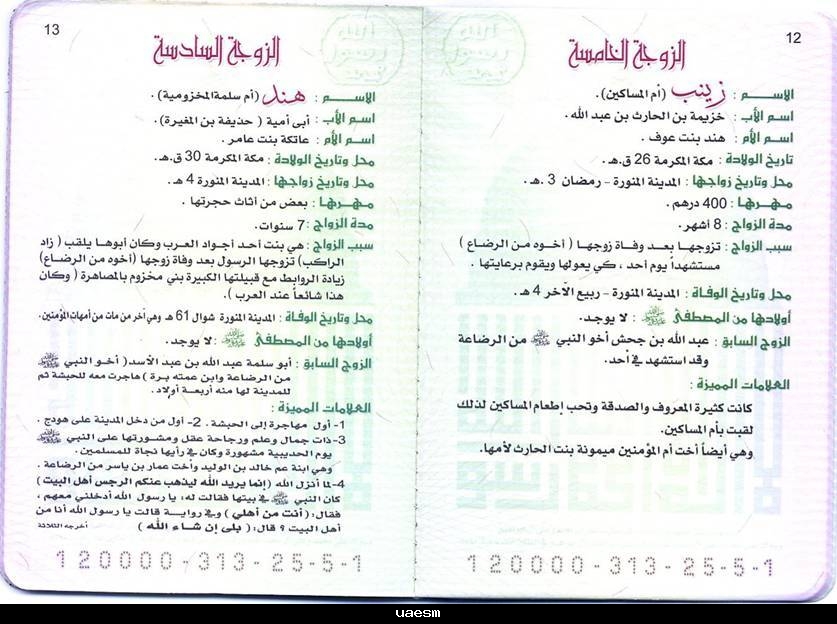 12
الزوجة الخامسة
الاســـم : زينب (أم المساكين).
اسم الأب : خزيمة بن الحارث بن عبد الله.
اسم الأم : هند بنت عوف.
تاريخ الولادة : مكة المكرمة 26 ق.هـ.
محل وتاريخ زواجها : المدينة المنورة - رمضان 3 .هـ.
مـهـرهـا : 400 درهم.
مدة الزواج : 8 أشهر.
سبب الزواج : تزوجها بعد وفاة زوجها ( أخوه من الرضاع )
مستشهداً يوم أحد ، كي يعولها ويقوم برعايتها .
محل وتاريخ الوفاة : المدينة المنورة - ربيع الآخر 4 هـ.
أولادها من المصطفى ﷺ : لا يوجد.
الزوج السابق : عبد الله بن جحش أخو النبي ﷺ من الرضاعة
وقد استشهد في أحد.
العلامات المميزة :
كانت كثيرة المعروف والصدقة وتحب إطعام المساكين لذلك
لقبت بأم المساكين.
وهي أيضاً أخت أم المؤمنين ميمونة بنت الحارث لأمها.
120000-313-25-5-1
13
الزوجة السادسة
الاســـم : هند (أم سلمة المخزومية) .
اسم الأب : أبي أمية ( حذيفة بن المغيرة).
اسم الأم : عاتكة بنت عامر .
محل وتاريخ الولادة : مكة المكرمة 30 ق.هـ.
محل وتاريخ زواجها : المدينة المنورة 4 هـ.
مـهـرهـا : بعض من أثاث حجرتها .
مدة الزواج : 7 سنوات.
سبب الزواج : هي بنت أحد أجواد العرب وكان أبوها يلقب ( زاد
الراكب) تزوجها الرسول بعد وفاة زوجها (أخوه من الرضاع)
زيادة الروابط مع قبيلتها الكبيرة بني مخزوم بالمصاهرة ( وكان
هذا شائعاً عند العرب ).
محل وتاريخ الوفاة : المدينة المنورة شوال 61 هـ وهي آخر من مات من أمهات المؤمنين.
أولادها من المصطفى ﷺ : لا يوجد.
الزوج السابق : أبو سلمة عبد الله بن عبد الأسد ( أخو النبي ﷺ
من الرضاعة وابن عمته برة ) هاجرت معه للحبشة ثم
للمدينة لها منه أربعة أولاد.
العلامات المميزة :
1- أول مهاجرة إلى الحبشة . 2- أول من دخل المدينة على هودج .
3- ذات جمال وعلم ورجاحة عقل ومشورتها على النبي ﷺ
يوم الحديبية مشهورة وكان في رأيها نجاة للمسلمين.
وهي ابنة عم خالد بن الوليد وأخت عمار بن ياسر من الرضاعة .
4- لما أنزل الله ( إنما يريد الله ليذهب عنكم الرجس أهل البيت )
كان النبي ﷺ في بيتها فقالت له: يا رسول الله أدخلني معهم ،
فقال: ( أنت من أهلي ) وفي رواية قالت يا رسول الله أنا من
أهل البيت ؟ قال: ( بلى إن شاء الله ) أخرجه الثلاثة
120000-313-25-5-1
uaesm